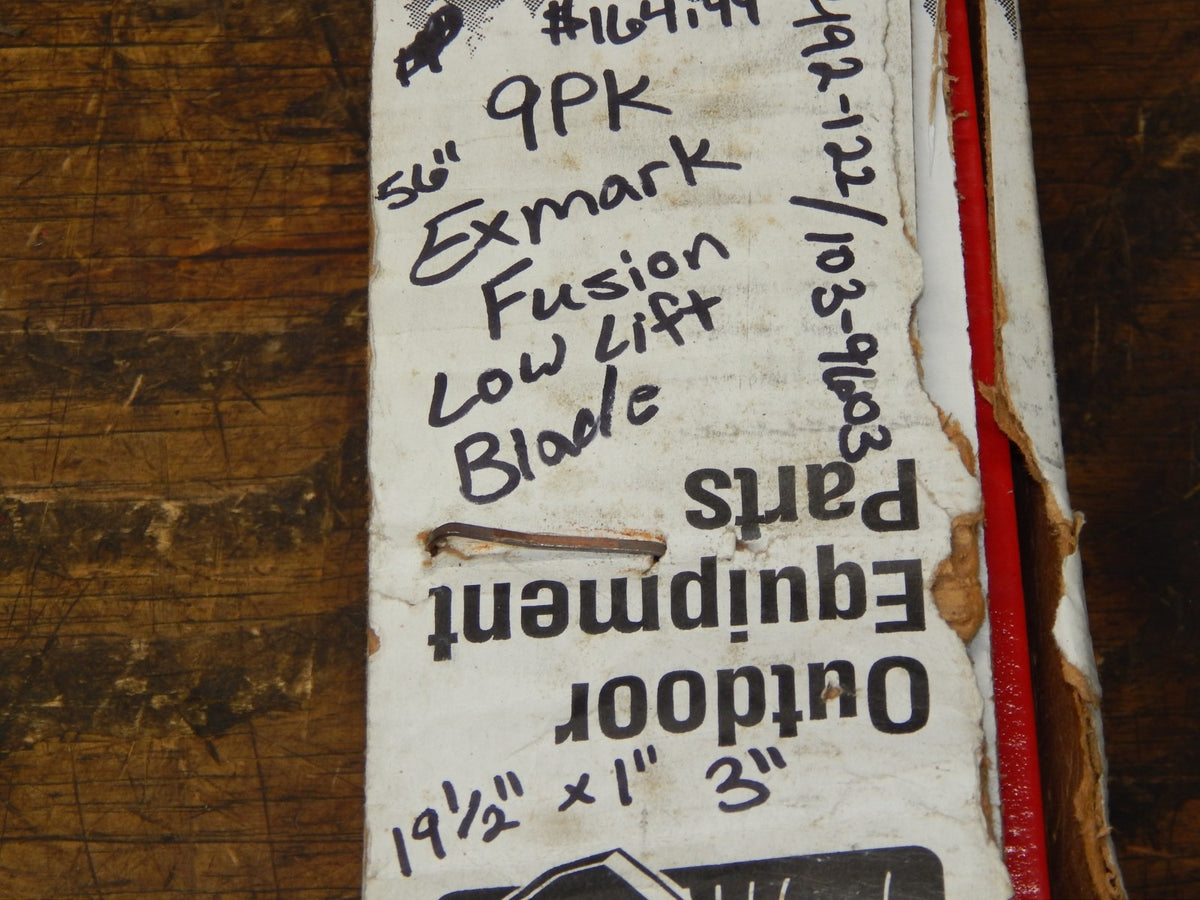 $164.99
9PK
56"
Exmark
Fusion
Low Lift
Blade
492-122/103-9603
Outdoor
Equipment
Parts
19 1/2" x 1" 3"